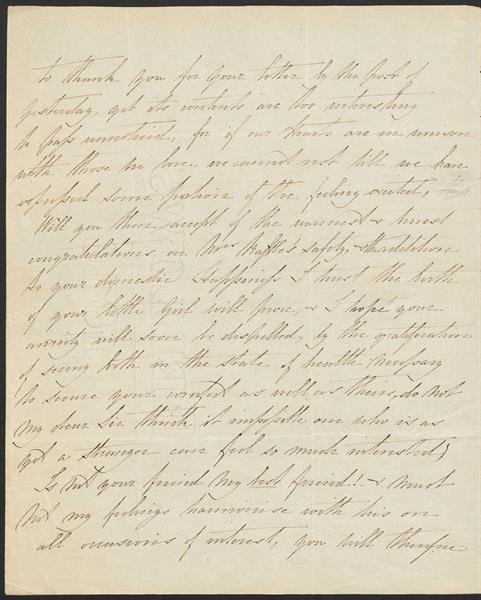 to thank you for your letter by the post of
yesterday, yet its contents are too interesting
to pass unnoticed, for if our Hearts are in unison
with those we love, we cannot rest till we have
expressed some portion of the feeling excited,
Will you then accept of the warmest & truest
congratulations on Mrs Raffles's safety, & the addition
to your domestic Happiness I trust the birth
of your little Girl will prove, & I hope your
anxiety will soon be dispelled, by the gratification
of seeing both in the state of health necessary
to secure your comfort as well as theirs, do not
my dear Sir think it impossible one who is as
yet a stranger can feel so much interested;
Is not your friend my best friend! & must
not my feelings harmonise with his on
all occasions of interest, you will therefore